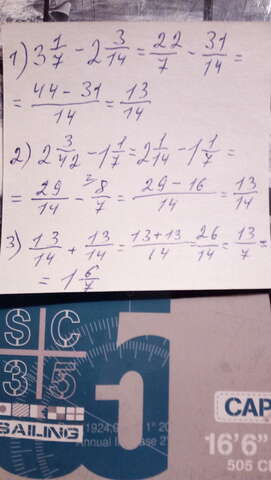 1) 3 1/7 - 2 3/14 = 22/7 - 31/14 =
= 44-31/14 = 13/14
2) 2 3/42 - 1 1/7 = 2 1/14 - 1 1/7 =
= 29/14 - 2) 8/7 = 29-16/14 = 13/14
3) 13/14 + 13/14 = 13+13/14 = 26/14 = 13/7 =
= 1 6/7
SC
35
SAILING
CAP
16'6"